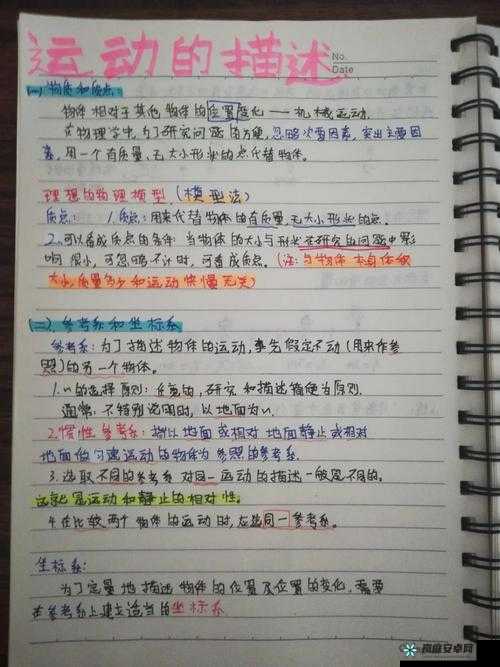 运动的描述
No.
Date
(一) 物质和质点:
物体相对于其他物体的位置变化——机械运动.
在物理学中,为了研究问题的方便,忽略次要因素,突出主要因
素,用一个有质量,无大小形状的点代替物体。
理想的物理模型(模型法)
质点: 1.质点:用来代替物体的有质量,无大小形状的点.
2.可以看成质点的条件:当物体的大小与形状在研究的问题中影
响很小,可忽略不计时,可看成质点。(注:与物体本身体积
大小,质量多少和运动快慢无关)
(二)、参考系和坐标系
参考系:为了描述物体的运动,事先假定不动(用来作参
照)的另一个物体。
1.的选择原则:任意的,研究和描述简便为原则.
通常,不特别说明时,以地面为
2.惯性参考系:指以地面或相对地面静止或相对
地面做匀速运动的物体为参照的参考系.
3.选取不同的参考系对同一运动的描述一般是不同的.
这就是运动和静止的相对性。
4.在比较两个物体的运动时,应选同一参考系。
坐标系:
为了定量地描述物体的位置及位置的变化,需要
在参考系上建立适当的坐标系
岚庭安卓网